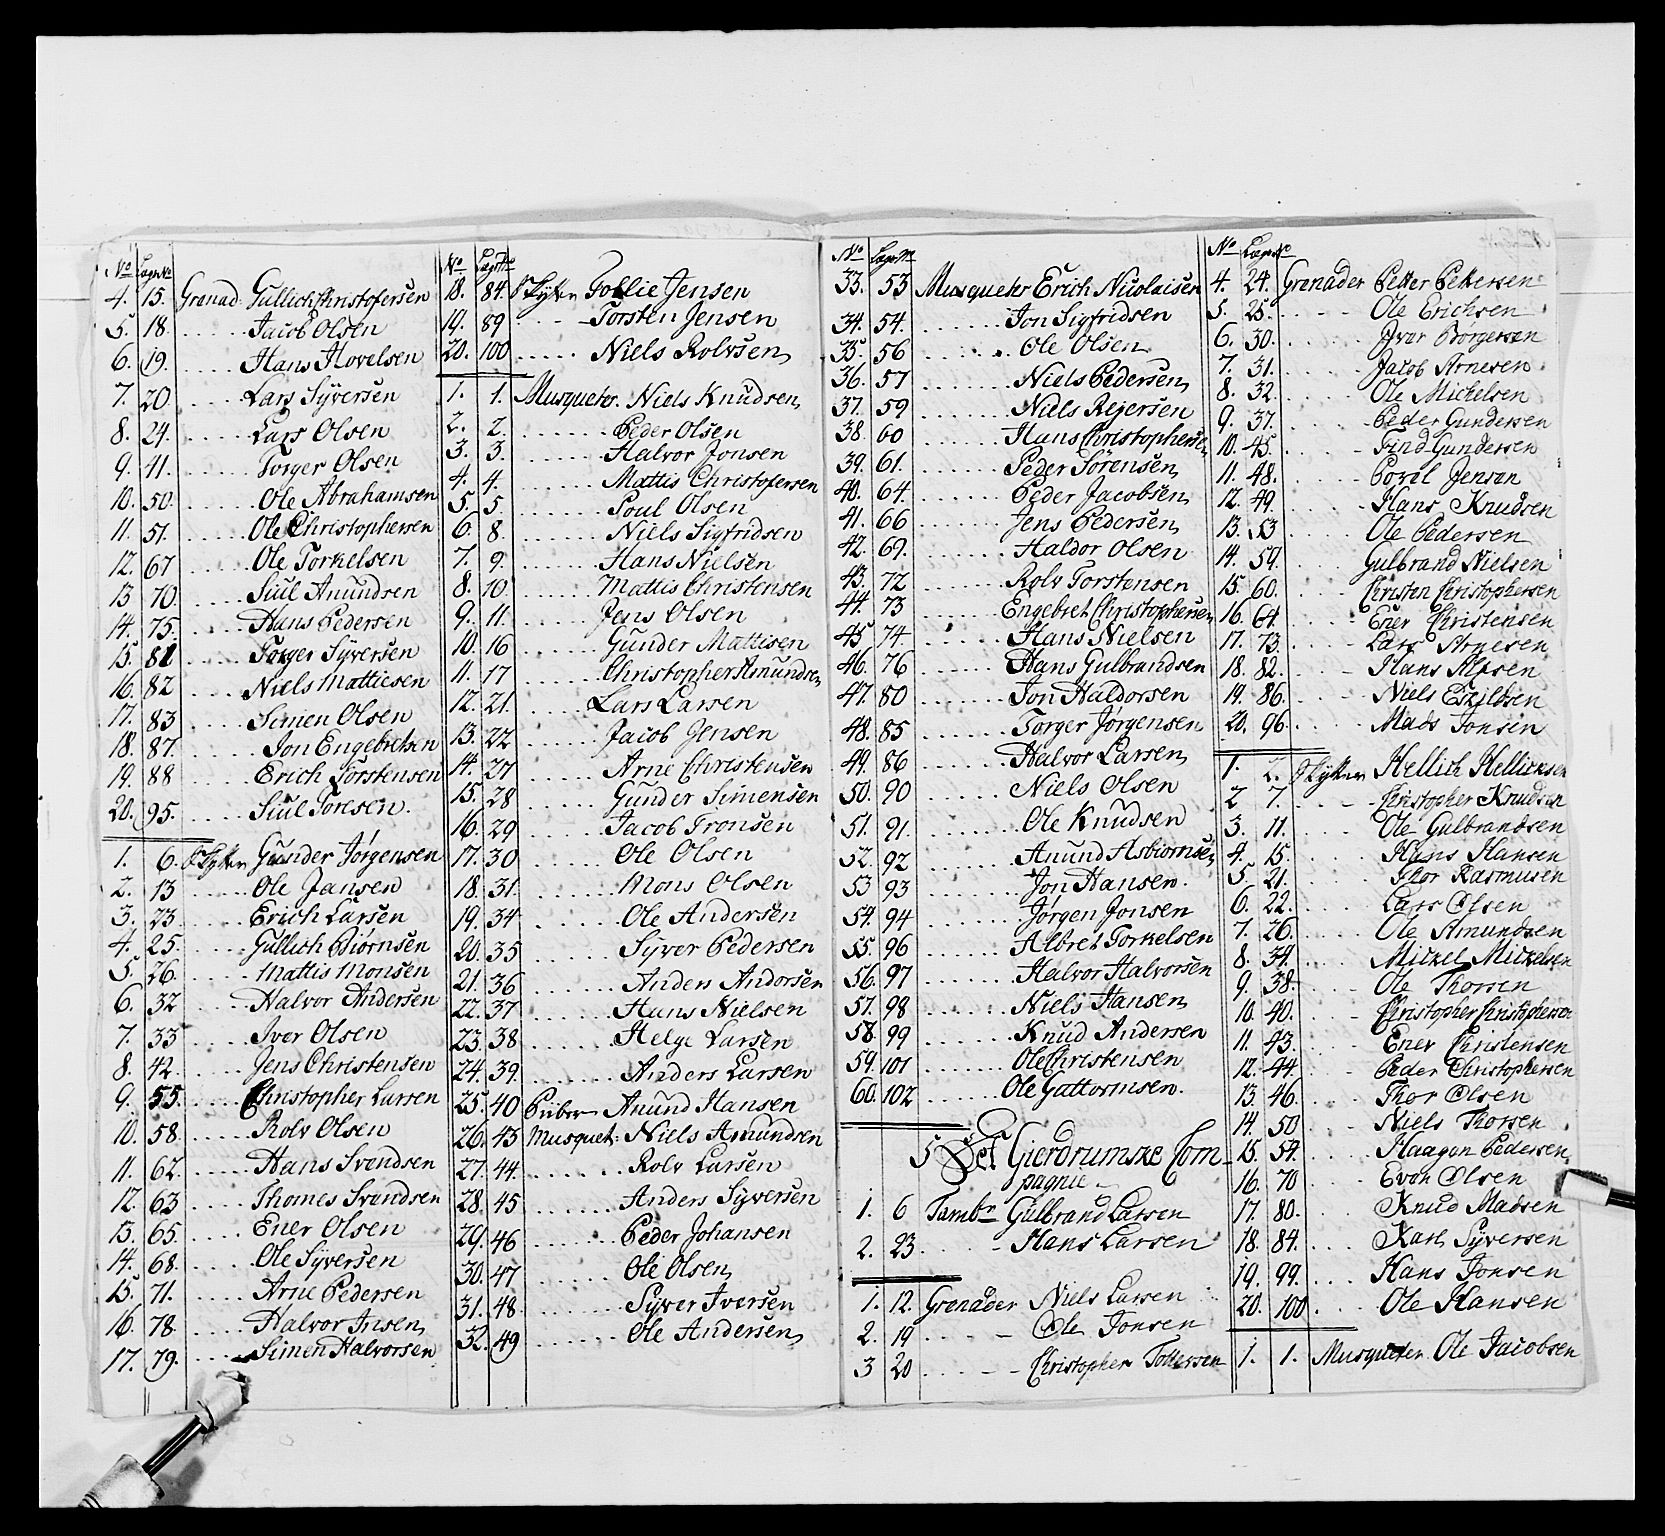 No Lægs No
4. 15. Grenad Gullich Christofersen
5. 18. Jacob Olsen
6. 19. Hans Hovelsen
7. 20. Lars Syversen
8. 24. Lars Olsen
9. 41. Torger Olsen
10. 50. Ole Abrahamsen
11. 51. Ole Christophersen
12. 67 Ole Torkelsen
13 70. Siul Anundsen
14. 75. Hans Pedersen
15. 81 Torger Syversen
16. 82 Niels Mattiesen
17. 83 Simen Olsen
18. 87. Jon Engebretsen
19. 88 Erich Torstensen
20. 95. Siul Toresen.
1. 6. Skytter Gunder Jørgensen
2. 13 Ole Jansen
3. 23. Erich Larsen
4. 25. Gullich Biørnsen
5. 26. Mattis Monsen
6. 32 Halvor Andersen
7. 33 Iver Olsen
8. 42. Jens Christensen
9. 55. Christopher Larsen
10. 58. Rolv Olsen
11. 62. Hans Svendsen
12. 63 Thomes Svendsen
13. 65. Ener Olsen
14. 68. Ole Syversen
15. 71. Arne Pedersen
16. 78. Halvor Jnsen
17. 79. Simen Halvorsen
No Lægs No
18. 84. Skytter Tollie Jensen
19. 89 Torsten Jensen
20. 100 Niels Rolvsen
1. 1. Musqueter. Niels Knudsen
2. 2. Peder Olsen
3. 3. Halvor Jonsen
4. 4. Mattis Christofersen
5. 5. Poul Olsen
6. 8. Niels Sigfridsen
7. 9. Hans Nielsen
8. 10. Mattis Christensen
9. 11. Jens Olsen
10. 16 Gunder Mattisen
11. 17 Christopher Amundsen
12. 21. Lars Larsen
13. 22 Jacob Jensen
14. 27 Arne Christensen
15. 28 Gunder Simensen
16. 29 Jacob Tronsen
17. 30 Ole Olsen
18. 31. Mons Olsen
19. 34 Ole Andersen
20. 35 Syver Pedersen
21. 36 Anders Andorsen
22. 37 Hans Nielsen
23. 38 Helge Larsen
24. 39. Anders Larsen
25. 40 Piiber Anund Hansen
26. 43 Musquet: Niels Amundsen
27. 44. Rolv Larsen
28. 45 Anders Syversen
29. 46 Peder Johansen
30. 47 Ole Olsen
31. 48 Syver Iversen
32. 49 Ole Andersen
No Lægs No
33. 53 Musqueter Erich Nicolaisen
34. 54. Jon Sigfridsen
35. 56 Ole Olsen
36. 57 Niels Pedersen
37. 59 Niels Rejersen
38. 60 Hans Christophersen
39. 61. Peder Sørensen
40. 64. Peder Jacobsen
41. 66 Jens Pedersen
42. 69. Haldor Olsen
43. 72 Rolv Torstensen
44. 73 Engebret Christophersen
45 74 Hans Nielsen
46. 76 Hans Gulbrandsen
47. 80 Jon Haldorsen
48. 85 Torger Jørgensen
49. 86 Halvor Larsen
50. 90 Niels Olsen
51. 91. Ole Knudsen
52. 92 Anund Asbiørnsen
53 93 Jon Hansen.
54. 94 Jørgen Jonsen
55. 96 Albret Torkelsen
56. 97 Halvor Halvorsen
57. 98 Niels Hansen
58. 99 Knud Andersen
59. 101 Ole Christensen
60. 102 Ole Gattormsen.
5 Det Gierdrumske Com-
pagnie
1. 6 Tambr Gulbrand Larsen
2. 23. Hans Larsen
1. 12. Grenader Niels Larsen
2. 19 Ole Jonsen
3 20 Christopher Tollersen
No Lægs No
4. 24. Grenader Petter Pettersen
5. 25. Ole Erichsen
6. 30. Jvar Børgersen
7. 31. Jacob Arnesen
8. 32. Ole Michelsen
9. 37. Peder Gundersen
10. 45. Find Gundersen
11. 48. Povel Jensen
12. 49. Hans Knudsen
13. 53 Ole Pedersen
14. 59. Gulbrand Nielsen
15. 60. Christen Christophersen
16. 64. Ener Christensen
17. 73. Lars Arnesen
18. 82. Hans Alfsen
19. 86. Niels Eskildsen
20. 96. Mads Jonsen
1. 2. Skytter Hellich Hellicksen
2 7. Christopher Knudsen
3. 11. Ole Gulbrandsen
4. 15. Hans Hansen
5. 21. Thor Rasmusen
6. 22. Lars Olsen
7. 26. Ole Amundsen
8. 34. Mickel Mickelsen
9. 38. Ole Thorsen
10. 40. Christopher Christophersen
11. 43. Ener Christensen
12. 44. Peder Christophersen
13. 46. Thor Olsen
14. 50 Niels Thorsen
15. 54. Haagen Pedersen
16. 70 Even Olsen
17. 80. Knud Madsen
18. 84. Karl Syversen
19. 99. Hans Jonsen
20. 100. Ole Hansen
1. 1. Musqueter Ole Jacobsen